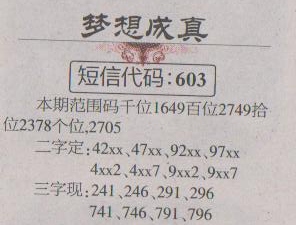 梦想成真
短信代码:603
本期范围码千位1649百位2749拾
位2378个位,2705
二字定:42xx、47xx、92xx、97xx
4xx2、4xx7、9xx2、9xx7
三字现:241、246、291、296
741、746、791、796